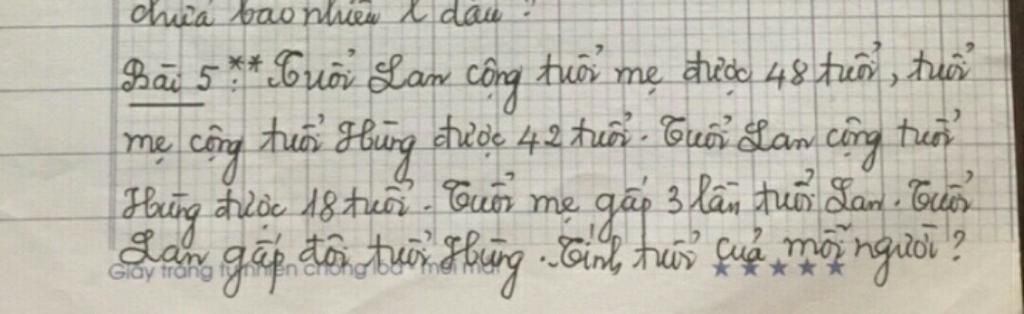 chứa bao nhiêu l dầu ?
Bài 5** : Tuổi Lan cộng tuổi mẹ được 48 tuổi, tuổi
mẹ cộng tuổi Hùng được 42 tuổi. Tuổi Lan cộng tuổi
Hùng được 18 tuổi. Tuổi mẹ gấp 3 lần tuổi Lan. Tuổi
Lan gấp đôi tuổi Hùng. Tính tuổi của mỗi người ?
Giấy trắng tự nhiên chống loá